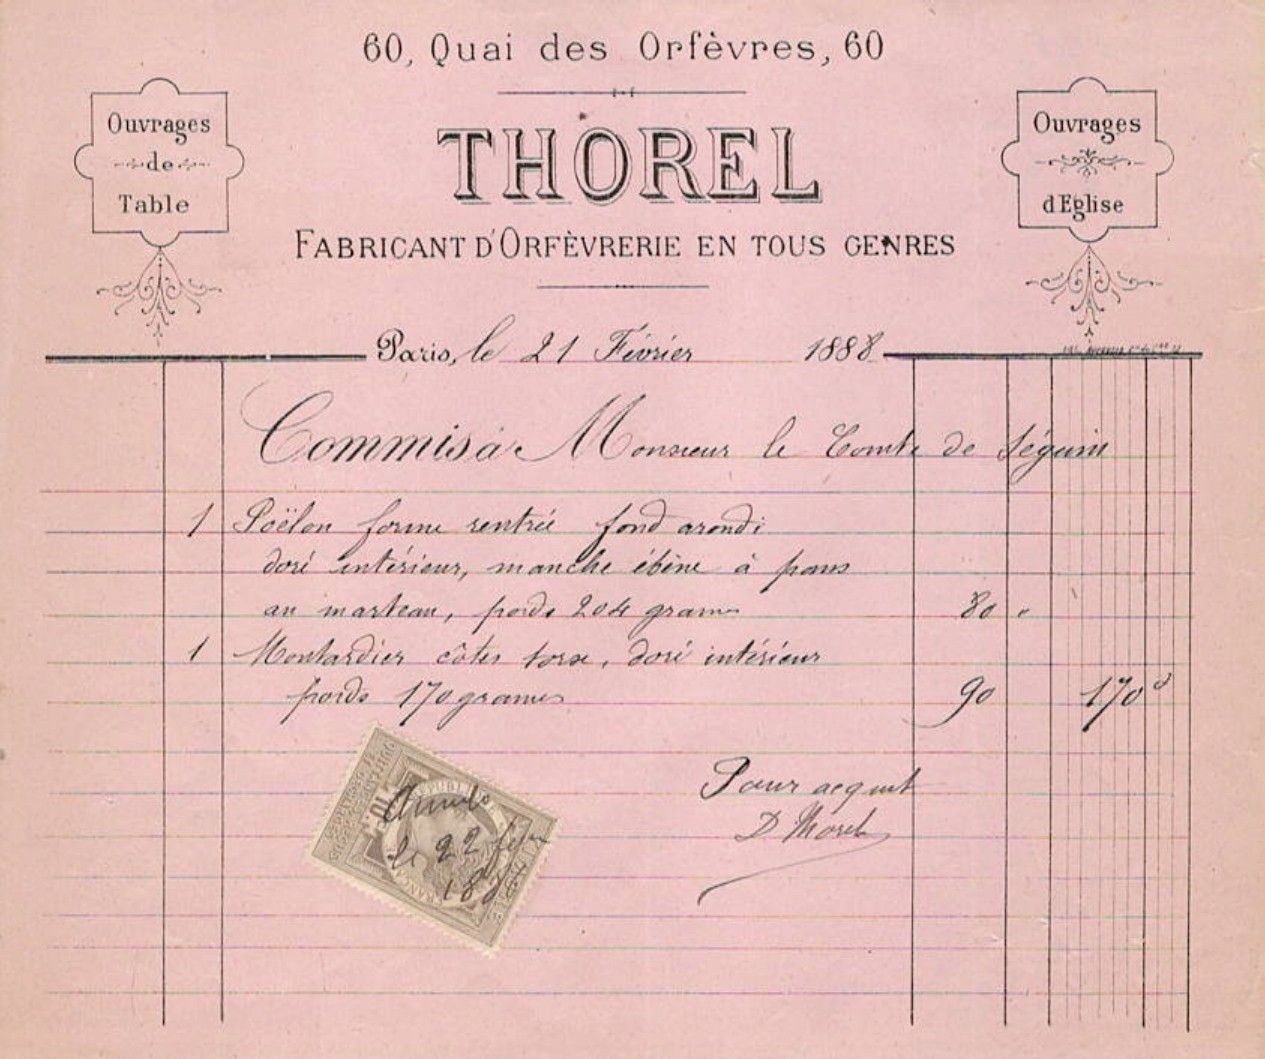 60, Quai des Orfèvres, 60
Ouvrages
de
Table
THOREL
FABRICANT D'ORFÈVRERIE EN TOUS GENRES
Ouvrages
d'Eglise
Paris, le 21 Février 1888
Commis à Monsieur le Comte de Séguin
1 Poëlon forme rentrée fond arondi
doré intérieur, manche ébène à pans
au marteau, poids 204 grames 80 "
1 Moutardier côtes torse, doré intérieur
poids 170 grames 90 170
Pour acquit
D Morel
10
le 22